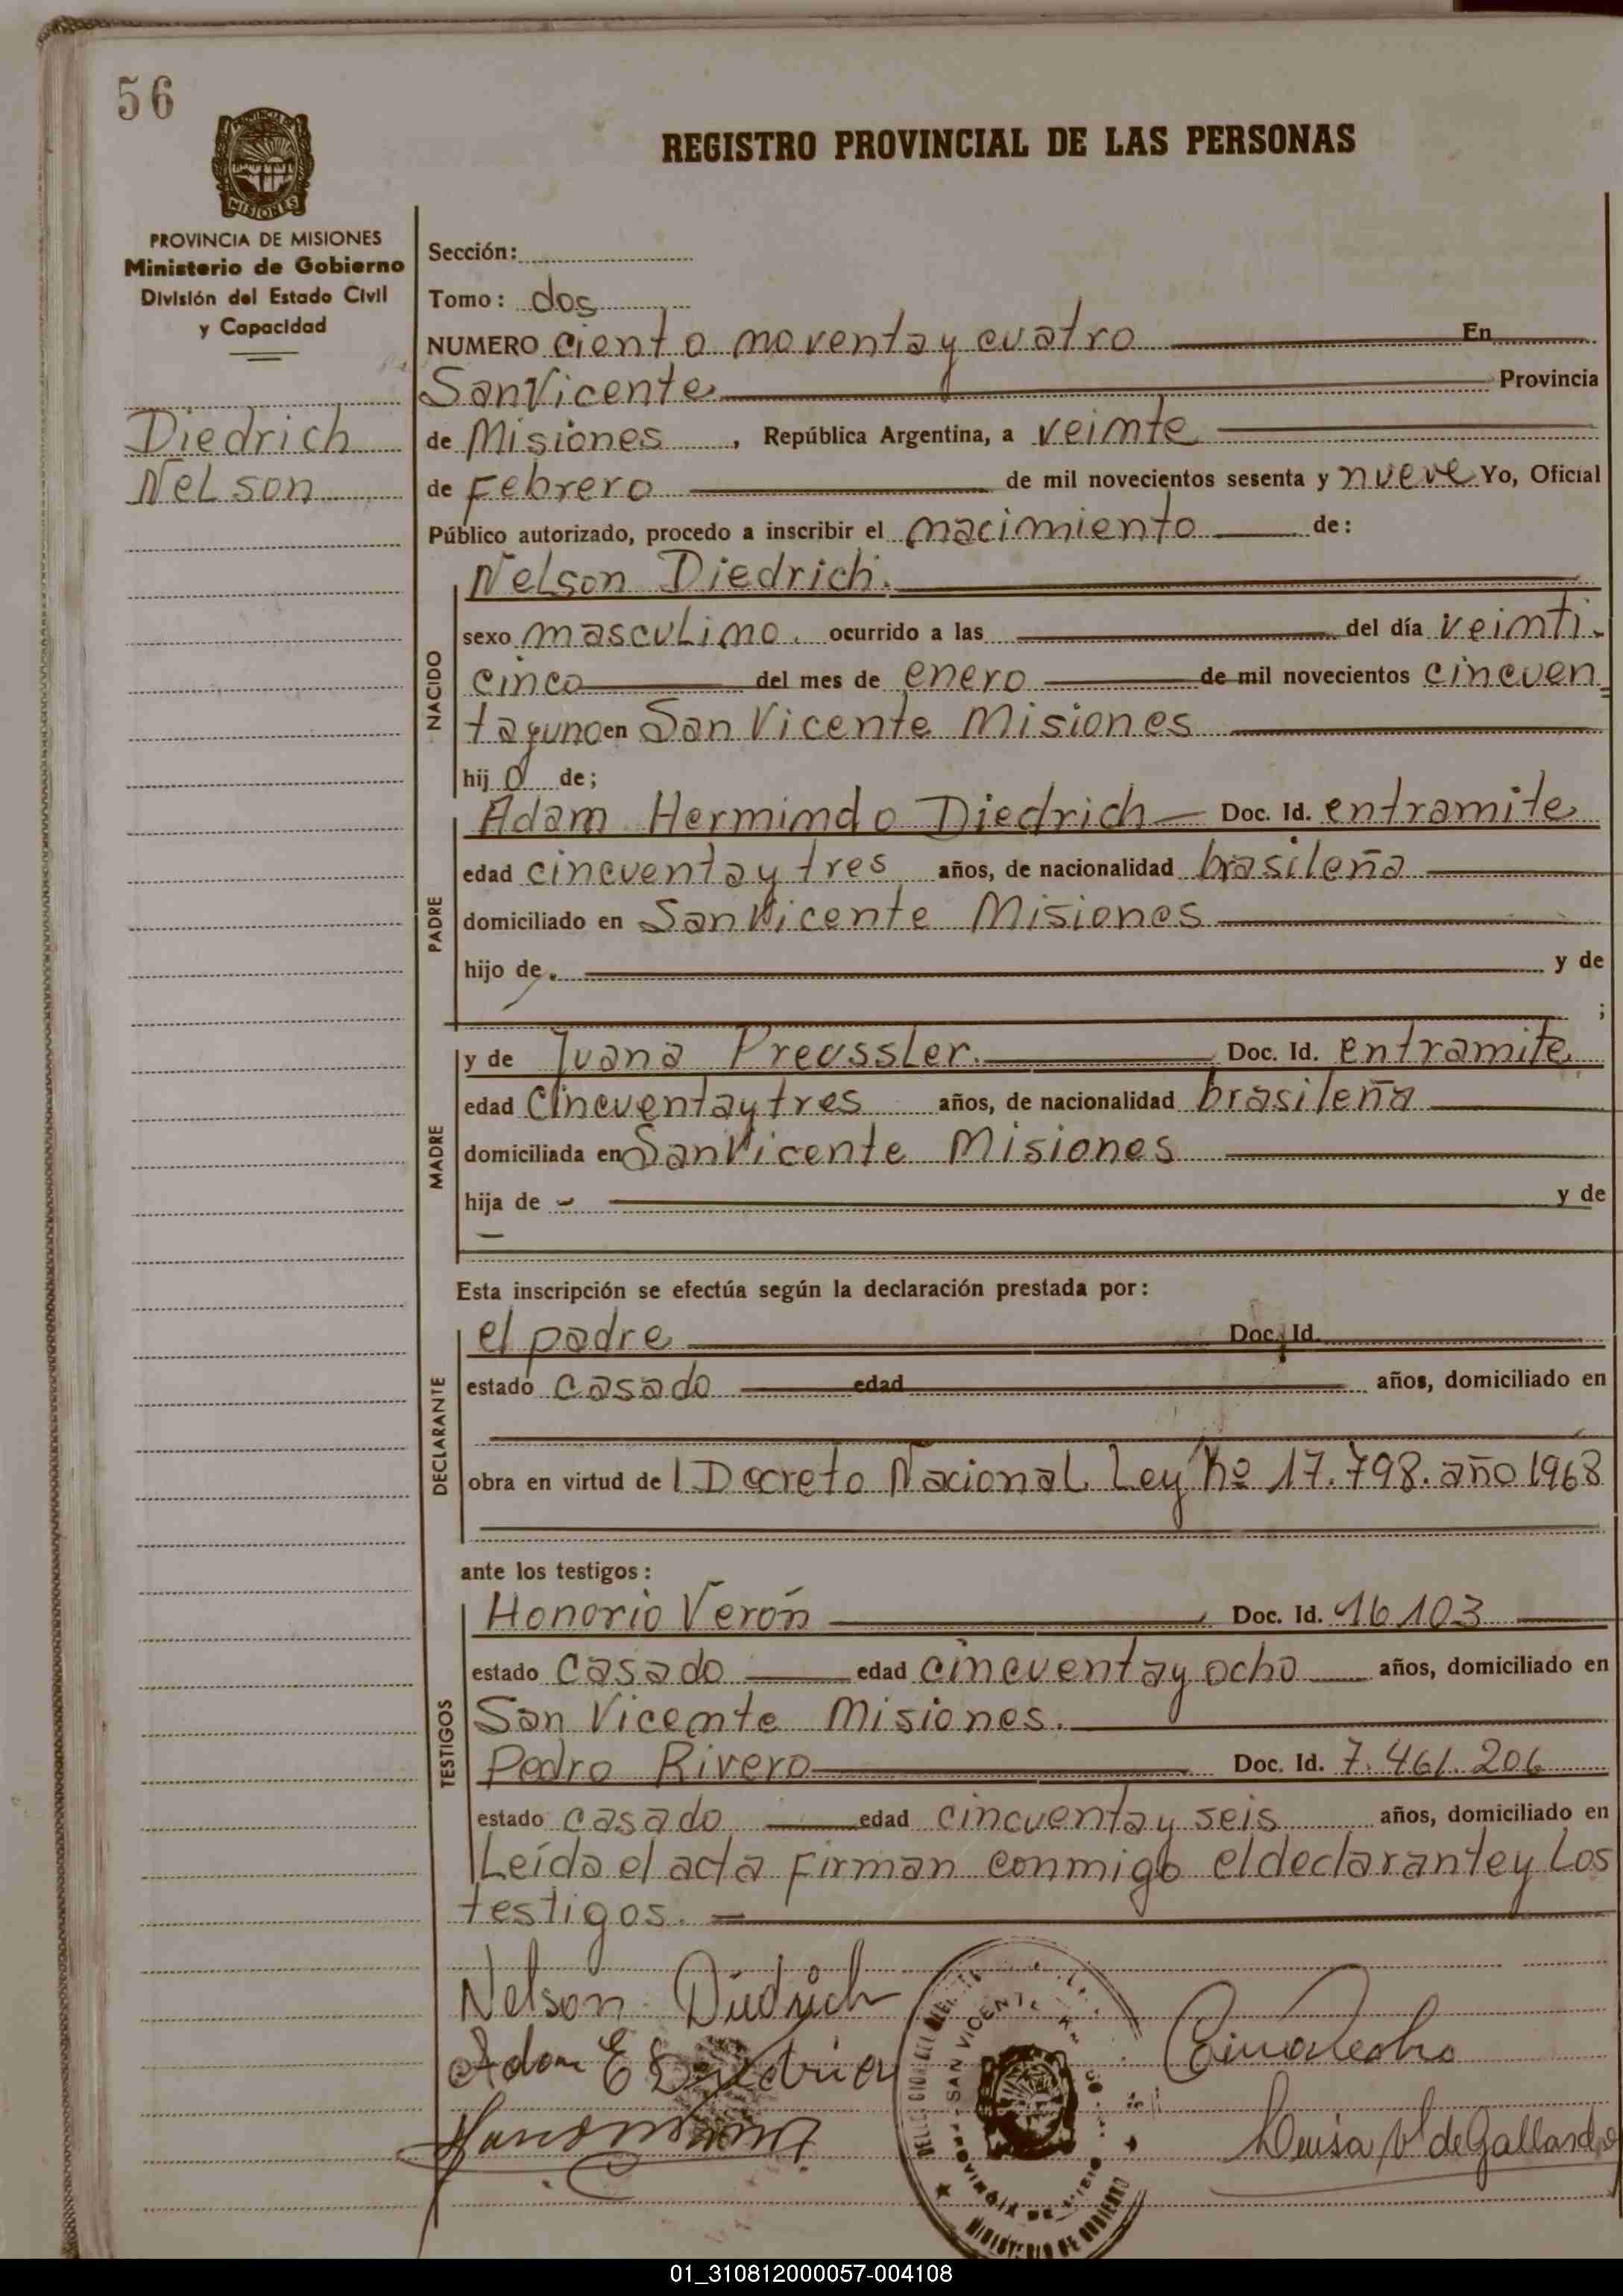 56
REGISTRO PROVINCIAL DE LAS PERSONAS
PROVINCIA DE MISIONES
Ministerio de Gobierno
División del Estado Civil
y Capacidad
Diedrich
Nelson
Sección:
Tomo: dos
NUMERO ciento noventa y cuatro En
San Vicente Provincia
de Misiones, República Argentina, a veinte
de Febrero de mil novecientos sesenta y nueve Yo, Oficial
Público autorizado, procedo a inscribir el nacimiento de:
NACIDO
Nelson Diedrich.
sexo masculino. ocurrido a las del día veinti-
cinco del mes de enero de mil novecientos cincuen=
ta y uno en San Vicente Misiones
hijo de;
PADRE
Adam Hermindo Diedrich Doc. Id. en tramite
edad cincuenta y tres años, de nacionalidad brasileña
domiciliado en San Vicente Misiones
hijo de y de
;
MADRE
y de Juana Preussler. Doc. Id. en tramite
edad cincuenta y tres años, de nacionalidad brasileña
domiciliada en San Vicente Misiones
hija de - y de
Esta inscripción se efectúa según la declaración prestada por:
DECLARANTE
el padre Doc. Id.
estado casado edad años, domiciliado en
obra en virtud de l Decreto Nacional Ley Nº 17.798. año 1968
ante los testigos:
TESTIGOS
Honorio Verón Doc. Id. 16.103
estado casado edad cincuenta y ocho años, domiciliado en
San Vicente Misiones.
Pedro Rivero Doc. Id. 7.461.206
estado casado edad cincuenta y seis años, domiciliado en
Leída el acta firman conmigo el declarante y los
testigos.
Nelson Diedrich
Adam E Diedrich
Luisa V de Gallardo
SAN VICENTE
PROVINCIA DE MISIONES
MINISTERIO DE GOBIERNO
01_310812000057-004108